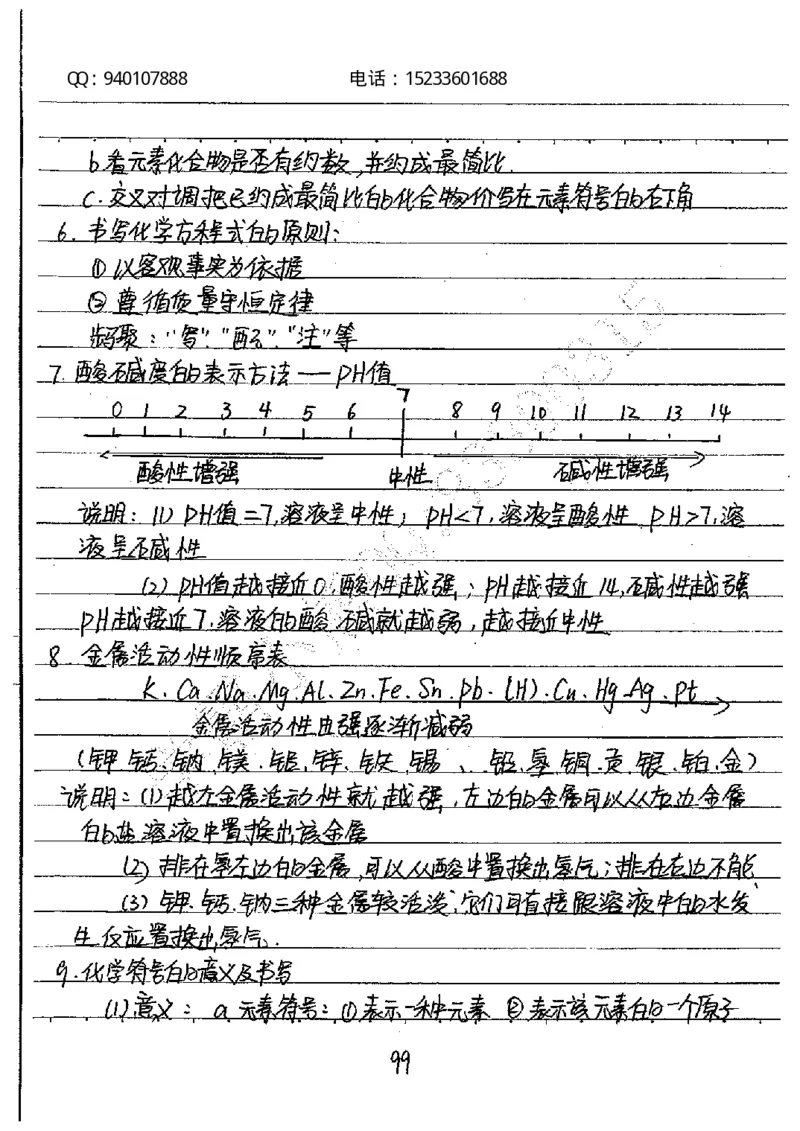 QQ：940107888 电话：15233601688
b.看元素化合物是否有约数,并约成最简比.
c.交叉对调把已约成最简比的化合物价写在元素符号的右下角
6.书写化学方程式的原则:
①以客观事实为依据
②尊循质量守恒定律
步聚:"写"."配"."注"等
7.酸碱度的表示方法——PH值
0 1 2 3 4 5 6 7 8 9 10 11 12 13 14
酸性增强 中性 碱性增强
说明:(1)PH值=7,溶液呈中性; PH<7,溶液呈酸性 PH>7,溶
液呈碱性
(2)PH值越接近0,酸性越强;PH越接近14,碱性越强
PH越接近7,溶液的酸.碱就越弱,越接近中性
8.金属活动性顺序表
K.Ca.Na.Mg.Al.Zn.Fe.Sn.pb.(H).Cu.Hg.Ag.pt
金属活动性由强逐渐减弱
(钾.钙.钠.镁.铝.锌.铁.锡、铅.氢.铜.汞.银.铂.金)
说明:(1)越左金属活动性就越强,左边的金属可以从右边金属
的盐溶液中置换出该金属
(2)排在氢左边的金属,可以从酸中置换出氢气;排在右边不能
(3)钾.钙.钠三种金属较活泼,它们可直接跟溶液中的水发
生反应置换出氢气.
9.化学符号的意义及书写
(1)意义: a元素符号:①表示一种元素 ②表示该元素的一个原子
99